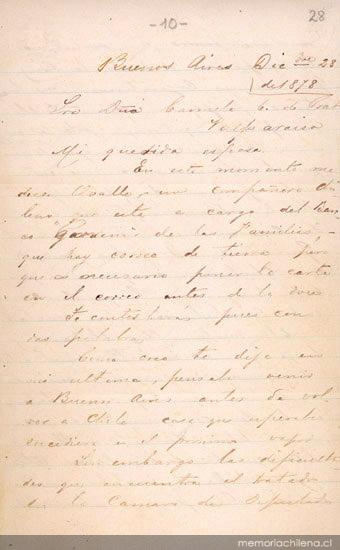 -10-
28
Buenos Aires Dic bre 28
del 1878
Sra Dña Carmela C. de Prat
Valparaiso
Mi querida esposa
En este momento me
dice Ovalle, un compañero
que está a cargo del Ban
co de las Familias,
que hay correo de tierra
que es necesario poner la carta
en el correo antes de las doce
Te contestaré, pues, con
dos palabras
Como creo te dije en
mi última, pensaba venir
a Buenos Aires antes de vol
ver a Chile cosa que esperaba
sucediera en el próximo vapor
Sin embargo las dificulta
des que encuentra el tratado
en la Camara de Diputados
memoriachilena.cl